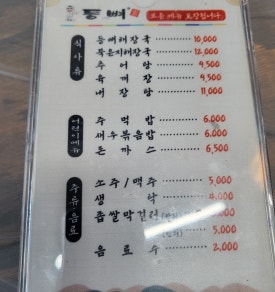 등뼈
모든 메뉴 포장됩니다
식사류
등뼈해장국 10,000
묵은지해장국 12,000
추어탕 9,500
육개장 9,500
내장탕 11,000
어린이메뉴
주먹밥 6,000
새우볶음밥 6,000
돈까스 6,500
주류·음료
소주/맥주 5,000
생탁 4,000
찹쌀막걸리 5,000
음료수 2,000